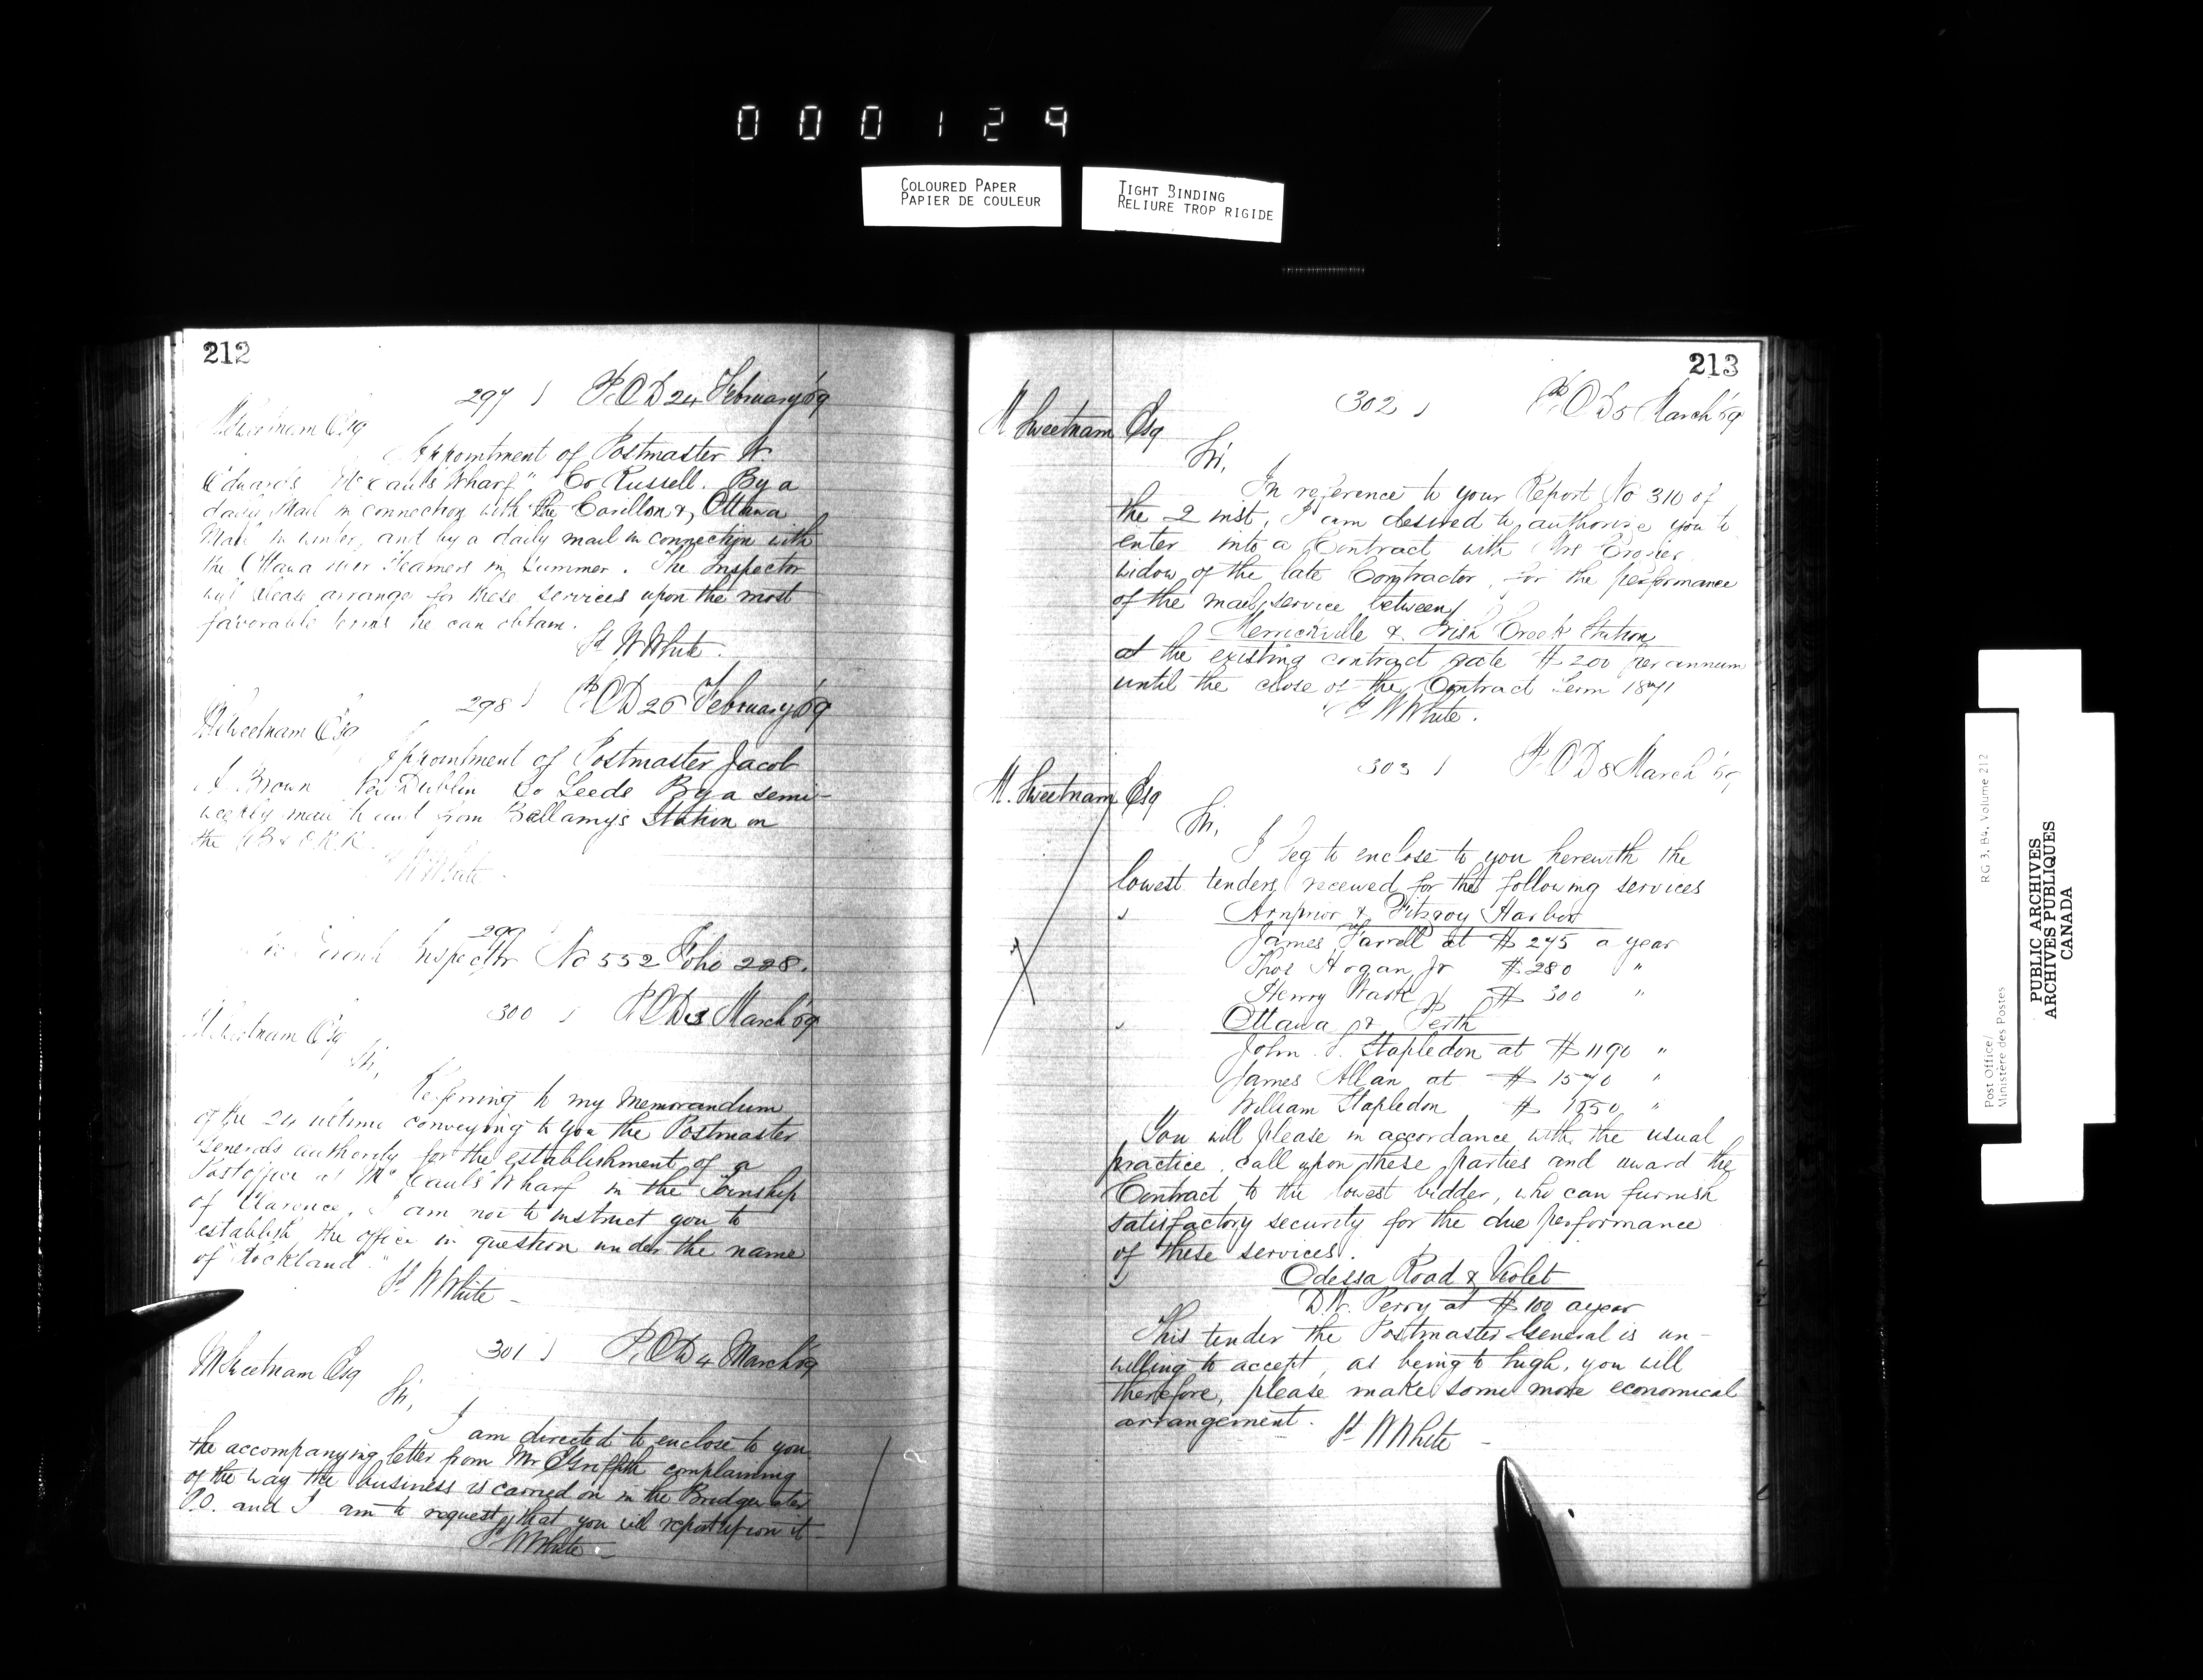 000129
COLOURED PAPER
PAPIER DE COULEUR
TIGHT BINDING
RELIURE TROP RIGIDE
212
297 P.O.D 24 February 69
M Sweetnam Esq
Appointment of Postmaster W.
Edwards "McCaul's Wharf" Co Russell. By a
daily Mail in connection with the Carillon & Ottawa
Mail in winter, and by a daily mail in connection with
the Ottawa river Steamers in Summer. The Inspector
will please arrange for these services upon the most
favorable terms he can obtain.
Sd W White.
298 P.O.D 26 February 69
M Sweetnam Esq
Appointment of Postmaster Jacob
A. Brown New Dublin Co Leeds By a semi-
weekly mail to and from Bellamy's Station on
the B & O.R.R.
Sd W White
299
Inspector No 552 Folio 228.
300 P.O.D 3 March 69
M Sweetnam Esq
Sir,
Referring to my Memorandum
of the 24 ultimo conveying to you the Postmaster
Generals authority for the establishment of a
Postoffice at McCaul's Wharf in the Township
of Clarence, I am now to instruct you to
establish the office in question under the name
of "Rockland."
Sd W White -
301 P.O.D 4 March 69
M Sweetnam Esq
Sir,
I am directed to enclose to you
the accompanying letter from Mr Griffith complaining
of the way the business is carried on in the Bridgewater
P.O. and I am to request that you will report upon it
Sd W White -
213
302 P.O.D 5 March 69
M. Sweetnam Esq
Sir,
In reference to your Report No 310 of
the 2 inst, I am desired to authorize you to
enter into a Contract with Mrs Crozier
widow of the late Contractor, for the performance
of the mail service between
Merrickville & Irish Creek Station
at the existing contract rate $200 per annum
until the close of the Contract Term 1871
Sd W White.
303 P.O.D 8 March 69
M. Sweetnam Esq
Sir,
I beg to enclose to you herewith the
lowest tenders received for the following services
Arnprior & Fitzroy Harbor
James Farrell at $275 a year
Thos Hogan Jr $280 "
Henry $300 "
Ottawa & Perth
John S. Stapledon at $1190 "
James Allan at $1570 "
William Stapledon $ "
You will please in accordance with the usual
practice, call upon these parties and award the
Contract to the lowest bidder, who can furnish
satisfactory security for the due performance
of these services.
Odessa Road & Violet
D W. Perry at $100 a year
This tender the Postmaster General is un-
willing to accept, as being to high, you will
therefore, please make some more economical
arrangement.
Sd W White -
Post Office/
Ministère des Postes
RG 3, B4, Volume 212
PUBLIC ARCHIVES
ARCHIVES PUBLIQUES
CANADA